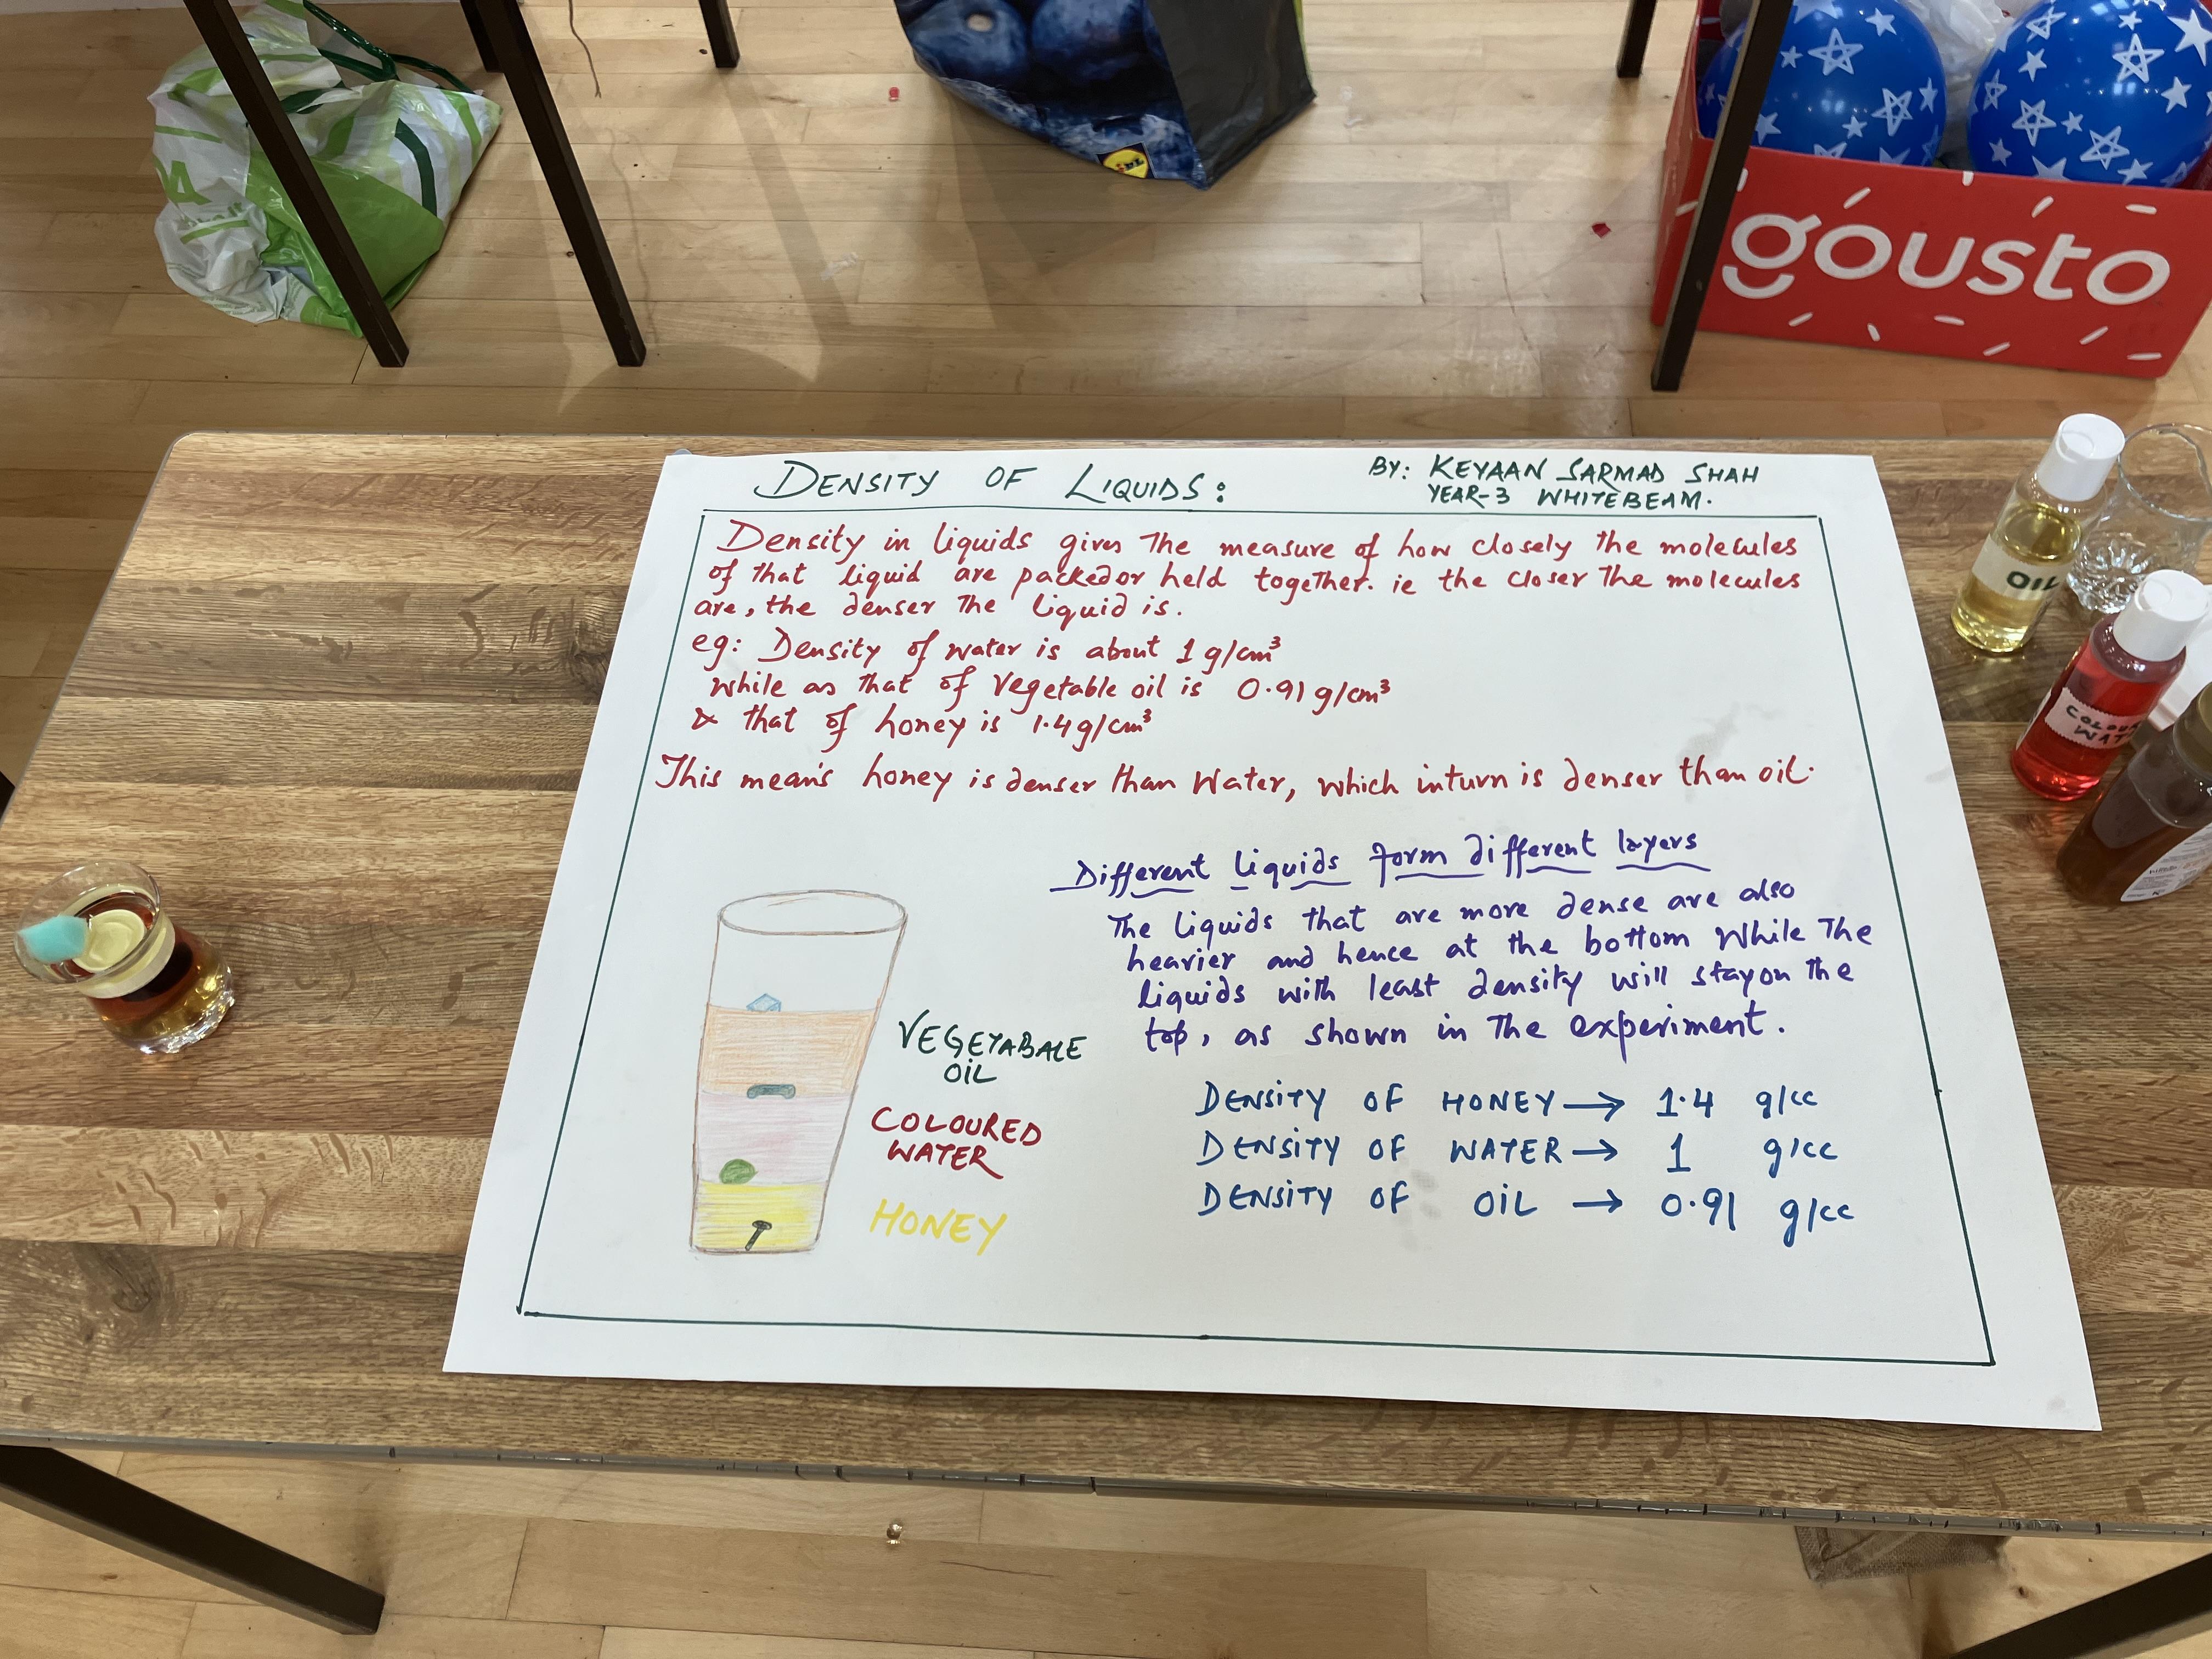 gousto
DENSITY OF LIQUIDS:
BY: KEYAAN SARMAD SHAH
YEAR-3 WHITEBEAM.
Density in liquids gives The measure of how closely The molecules
of that liquid are packed or held together. ie the closer The molecules
are, the denser The liquid is.
eg: Density of water is about 1 g/cm³
while as that of vegetable oil is 0.91 g/cm³
& that of honey is 1.4 g/cm³
This mean's honey is denser than Water, which inturn is denser than oil.
Different liquids form different layers
The liquids that are more dense are also
heavier and hence at the bottom While The
liquids with least density will stay on the
top, as shown in The experiment.
VEGETABALE
OIL
COLOURED
WATER
HONEY
DENSITY OF HONEY → 1.4 g/cc
DENSITY OF WATER → 1 g/cc
DENSITY OF OIL → 0.91 g/cc
OIL